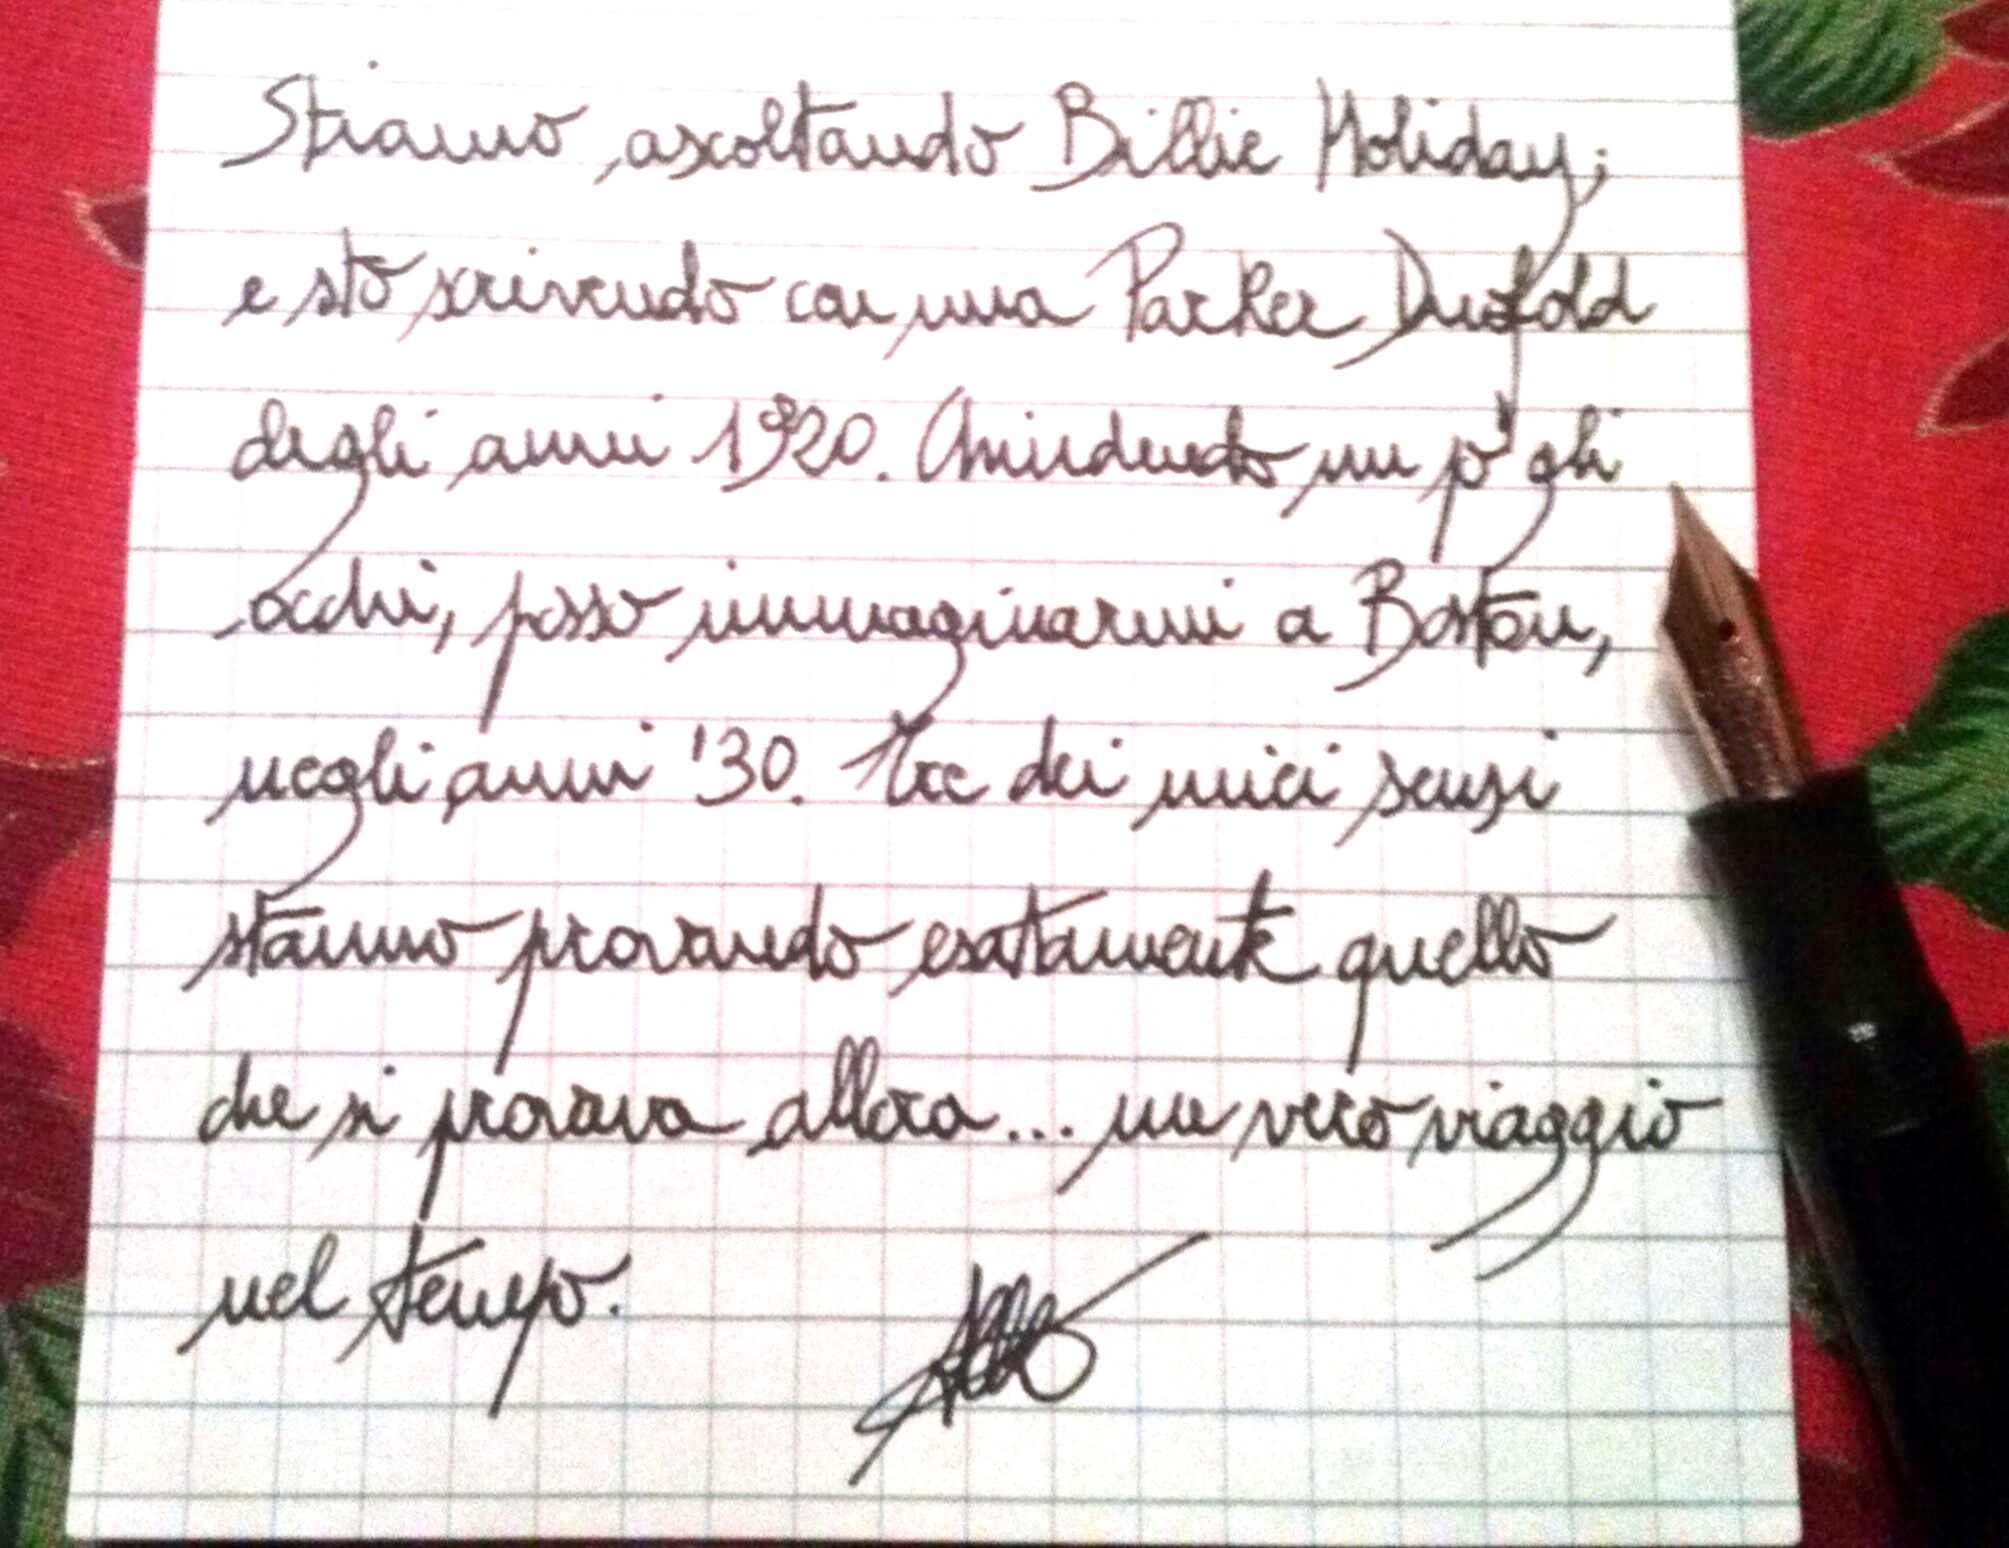 Stiamo ascoltando Billie Holiday;
e sto scrivendo con una Parker Duofold
degli anni 1920. Chiudendo un pò gli
occhi, posso immaginarmi a Boston,
negli anni '30. Tre dei miei sensi
stanno provando esattamente quello
che si provava allora... un vero viaggio
nel tempo.